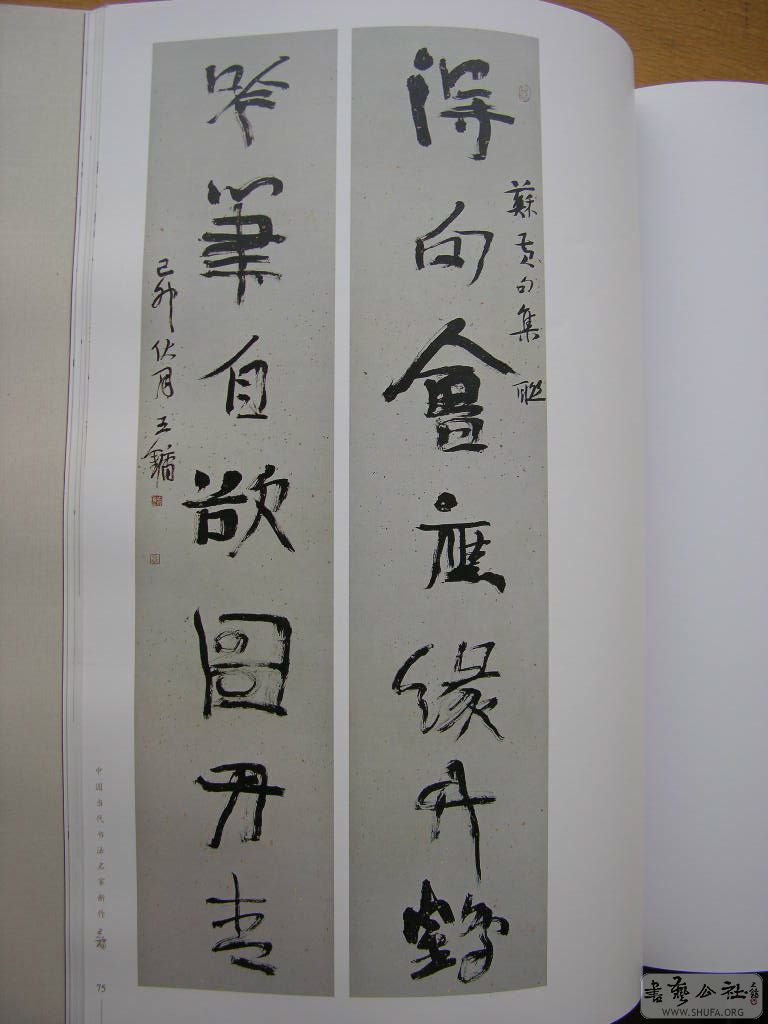 得句會應緣竹鶴
蘇黃句集聯
吟筆自欲圖丹青
己卯伏月王鏞
中国当代书法名家新作 王鏞
75
書藝公社
WWW.SHUFA.ORG